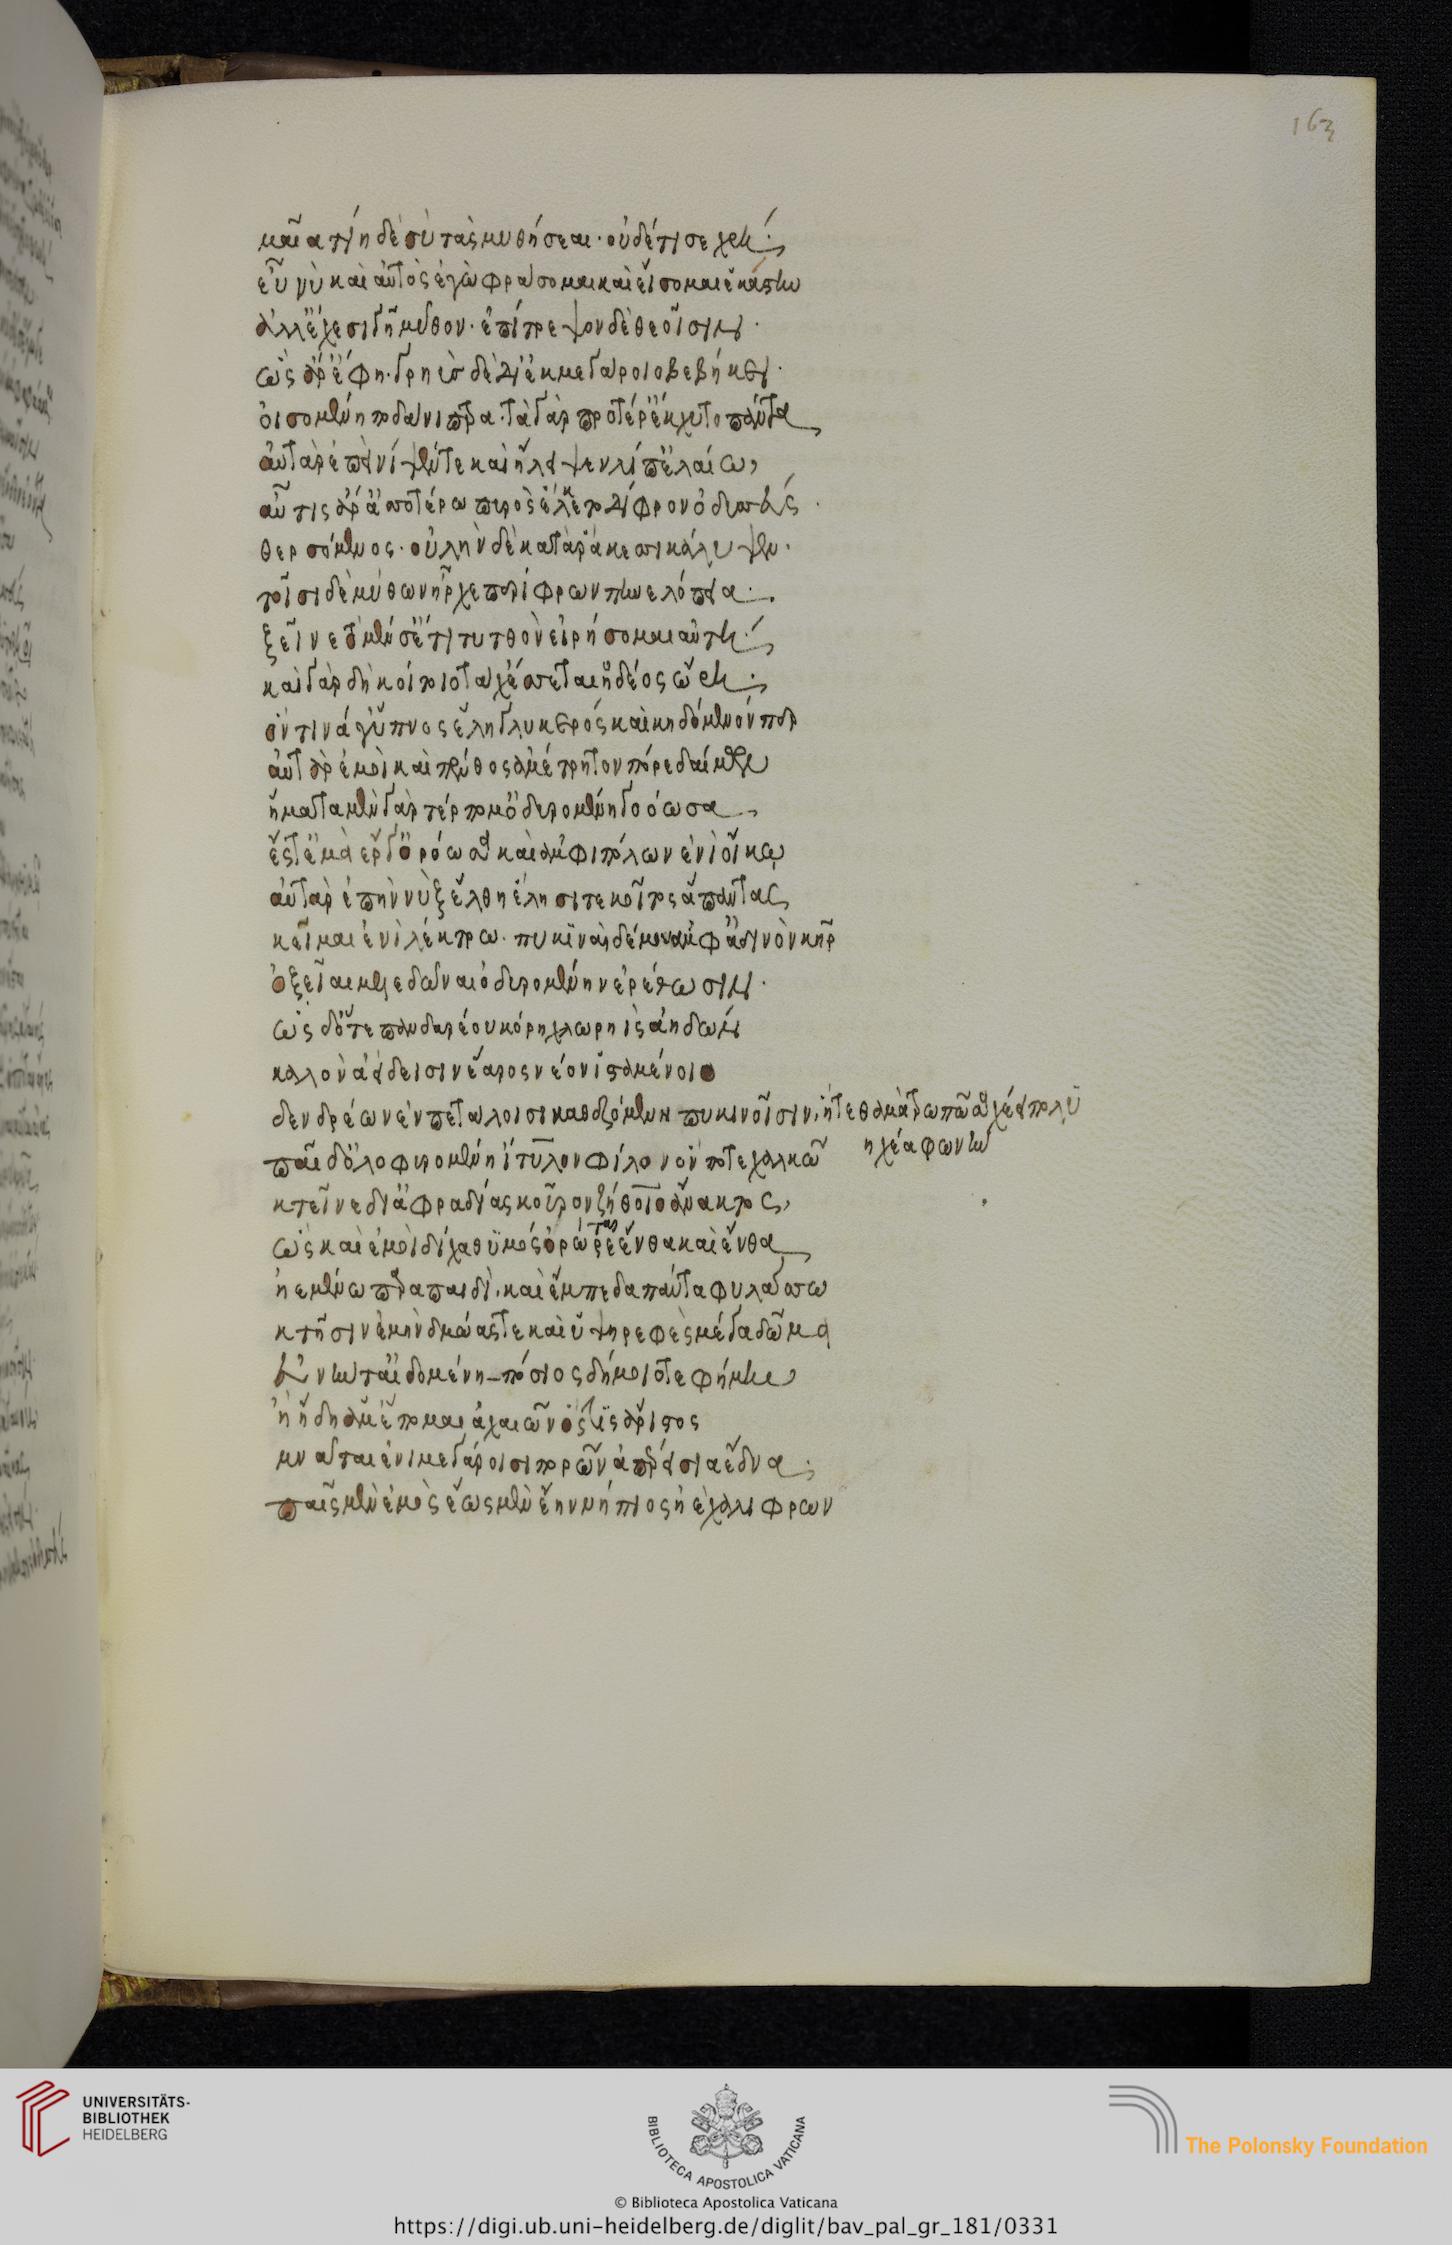 163
μαῖα τίη δὲ σὺ τὰς μυθήσεαι· οὐδέ τι σε χρή·
εὖ νὺ καὶ αὐτὸς ἐγὼ φράσομαι καὶ εἴσομαι ἑκάστην
ἀλλ' ἔχε σιγῇ μῦθον· ἐπίτρεψον δὲ θεοῖσιν·
ὣς ἄρ' ἔφη· γρηῢς δὲ δι' ἐκ μεγάροιο βεβήκει·
οἰσομένη ποδάνιπτρα· τὰ γὰρ πρότερ' ἔκχυτο πάντα
αὐτὰρ ἐπεὶ νίψέν τε καὶ ἤλειψεν λίπ' ἐλαίω,
αὖτις ἄρ' ἀσσοτέρω πυρὸς ἕλκετο δίφρον ὀδυσσεύς·
θερσόμενος· οὐλὴν δὲ κατὰ ῥακέεσσι κάλυψεν·
τοῖσι δὲ μύθων ἦρχε περίφρων πηνελόπεια·
ξεῖνε τὸ μέν σ' ἔτι τυτθὸν εἰρήσομαι αὐτή·
καὶ γὰρ δὴ κοίτοιο τάχ' ἔσσεται ἡδέος ὥρη·
ὅν τινά γ' ὕπνος ἕλη γλυκερός καὶ κηδόμενόν περ
αὐτὰρ ἐμοὶ καὶ πένθος ἀμέτρητον πόρε δαίμων
ἤματα μὲν γὰρ τέρπομ' ὀδυρομένη γοόωσα
ἔς τ' ἐμὰ ἔργ' ὁρόωσα καὶ ἀμφιπόλων ἐνὶ οἴκῳ
αὐτὰρ ἐπὴν νὺξ ἔλθη ἕλησι τε κοῖτος ἅπαντας
κεῖμαι ἐνὶ λέκτρω· πυκιναὶ δέ μοι ἀμφ' ἀδινὸν κῆρ
ὀξεῖαι μελεδῶναι ὀδυρομένην ἐρέθωσιν·
ὡς δ' ὅτε πανδαρέου κόρη χλωρηὶς ἀηδών
καλὸν ἀείδεισιν ἔαρος νέον ἱσταμένοιο
δενδρέων ἐν πετάλοισι καθεζόμενη πυκινοῖσιν, ἥτε θαμὰ τρωπῶσα χέει πολυ
ηχέα φωνὴν
παῖδ' ὀλοφυρομένη ἴτυλον φίλον ὅν ποτε χαλκῶ
κτεῖνε δι' ἀφραδίας κοῦρον ζήθοιο ἄνακτος,
ὣς καὶ ἐμοὶ δίχα θυμός ὀρώρεται ἔνθα καὶ ἔνθα
ἠὲ μένω παρὰ παιδὶ, καὶ ἔμπεδα πάντα φυλάσσω
κτῆσιν ἐμὴν δμώάς τε καὶ ὑψηρεφὲς μέγα δῶμα
εὐνὴν τ' αἰδομένη πόσιος δήμοιό τε φήμιν
ἢ ἤδη ἅμ' ἕπομαι ἀχαιῶν ὅς τις ἄριστος
μνᾶται ἐνὶ μεγάροισι πορῶν ἀπερείσια ἕδνα·
παῖς μὲν ἐμὸς ἕως μὲν ἔην νήπιος ἠ' χαλίφρων
UNIVERSITÄTS-
BIBLIOTHEK
HEIDELBERG
BIBLIOTECA APOSTOLICA VATICANA
The Polonsky Foundation
© Biblioteca Apostolica Vaticana
https://digi.ub.uni-heidelberg.de/diglit/bav_pal_gr_181/0331